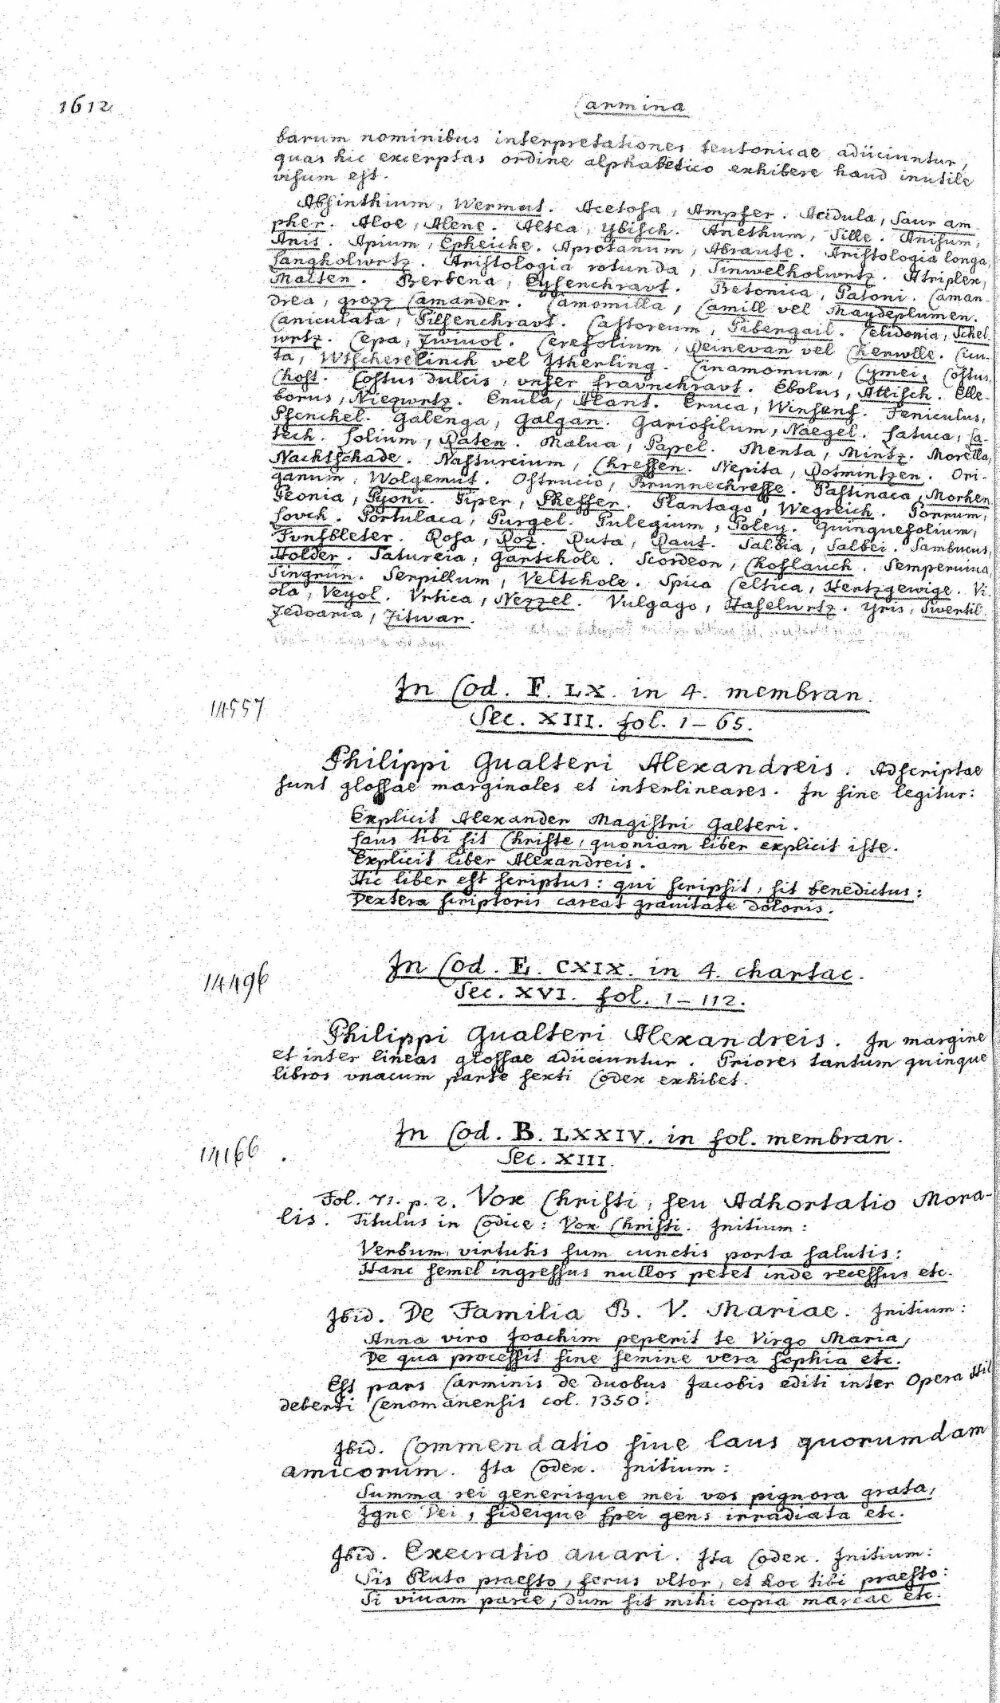 1612
Carmina
barum nominibus interpretationes teutonicae adiiciuntur,
quas hic excerptas ordine alphabetico exhibere haud inutile
visum est.
Absinthium, Wermut. Acetosa, Ampfer. Acidula, Saur am-
pher. Aloe, Alene. Altea, Ybisch. Anethum, Tille. Anisum,
Anis. Apium, Epheiche. Aprotanum, Abraute. Aristologia longa,
Langholwrtz. Aristologia rotunda, Sinwelholwrtz. Atriplex,
Malten. Berbena, Eysenchravt. Betonica, Patoni. Caman-
drea, grozz Camander. Camomilla, Camill vel Maydeplumen.
Caniculata, Pilsenchravt. Castoreum, Pibengail. Celidonia, Schel-
wrtz. Cepa, Zwiuol. Cerefolium, Reinevan vel Cherwlle. Cicu-
ta, Wtscherelinch vel Ytherling. Cinamomum, Cymei. Costus,
Chost. Costus dulcis, vnser fravnchravt. Ebolus, Attisch. Elle-
borus, Niezwrtz. Enula, Alant. Eruca, Winsenf. Feniculus,
Phenchel. Galenga, Galgan. Gariofilum, Naegel. Latuca, La-
tech. Lolium, Raten. Malua, Papel. Menta, Mintz. Morella,
Nachtschade. Nasturcium, Chressen. Nepita, Rotmintzen. Ori-
ganum, Wolgemut. Ostrucio, Brunnechresse. Pastinaca, Morhen.
Peonia, Pyoni. Piper, Pheffer. Plantago, Wegreich. Porrum,
Lovch. Portulaca, Purgel. Pulegium, Poley. Quinquefolium,
Fvnfbleter. Rosa, Roz. Ruta, Raut. Salbia, Salbei. Sambucus,
Holder. Satureia, Gartchole. Scordeon, Choflauch. Semperuiua,
Singrün. Serpillum, Veltchole. Spica Celtica, Hertzgewige. Vi-
ola, Veyol. Vrtica, Nezzel. Vulgago, Haselwrtz. Yris, Swertil.
Zedoaria, Zitwar.
14557
In Cod. F. LX. in 4. membran.
Sec. XIII. fol. 1-65.
Philippi Gualteri Alexandreis. Adscriptae
sunt glossae marginales et interlineares. In fine legitur:
Explicit Alexander Magistri Galteri.
Laus tibi sit Christe, quoniam liber explicit iste.
Explicit liber Alexandreis.
Hic liber est scriptus: qui scripsit, sit benedictus:
Dextera scriptoris careat grauitate doloris.
14496
In Cod. E. CXIX. in 4. chartac.
Sec. XVI. fol. 1-112.
Philippi Gualteri Alexandreis. In margine
et inter lineas glossae adiiciuntur. Priores tantum quinque
libros vnacum parte sexti Codex exhibet.
14166
In Cod. B. LXXIV. in fol. membran.
Sec. XIII.
Fol. 71. p. 2. Vox Christi, seu Adhortatio Mora-
lis. Titulus in Codice: Vox Christi. Initium:
Verbum virtutis sum cunctis porta salutis:
Hanc semel ingressus nullos petet inde recessus etc.
Ibid. De Familia B. V. Mariae. Initium:
Anna viro Joachim peperit te Virgo Maria,
De qua processit sine semine vera sophia etc.
Est pars Carminis de duobus Jacobis editi inter Opera Hil-
deberti Cenomanensis col. 1350.
Ibid. Commendatio siue laus quorumdam
amicorum. Ita Codex. Initium:
Summa rei generisque mei vos pignora grata,
Igne Dei, fideique spei gens irradiata etc.
Ibid. Execratio auari. Ita Codex. Initium:
Sis Pluto praesto, ferus vltor, et hoc tibi praesto:
Si viuam parce, dum sit mihi copia marcae etc.